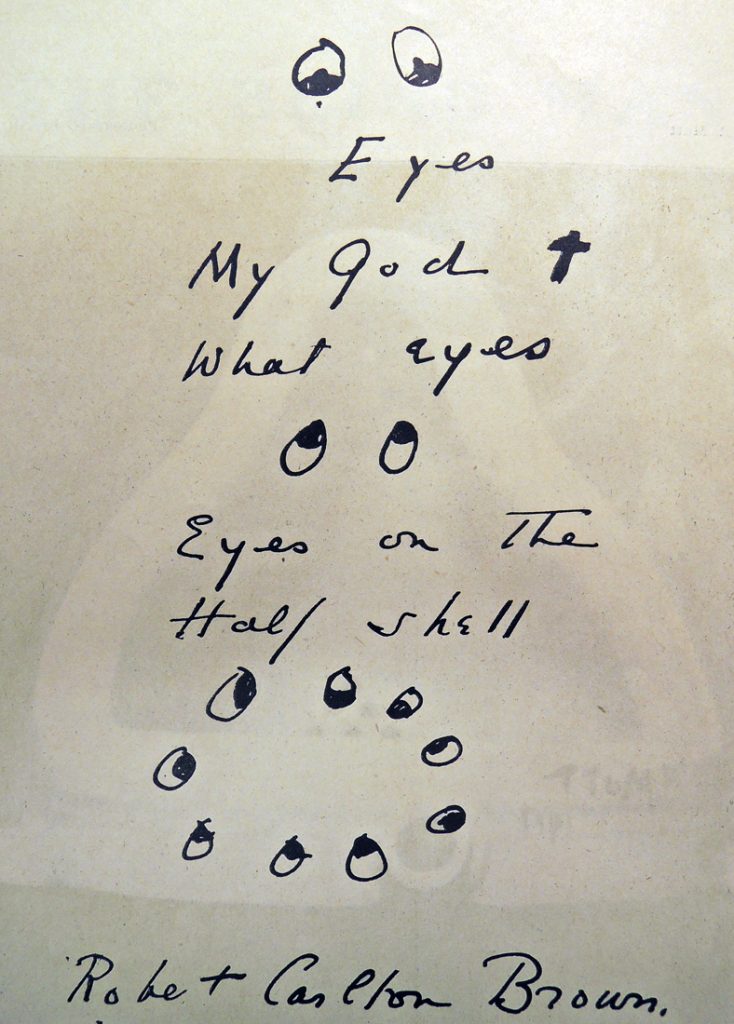 Eyes
My god
What eyes
Eyes on the
Half shell
Robert Carlton Brown.